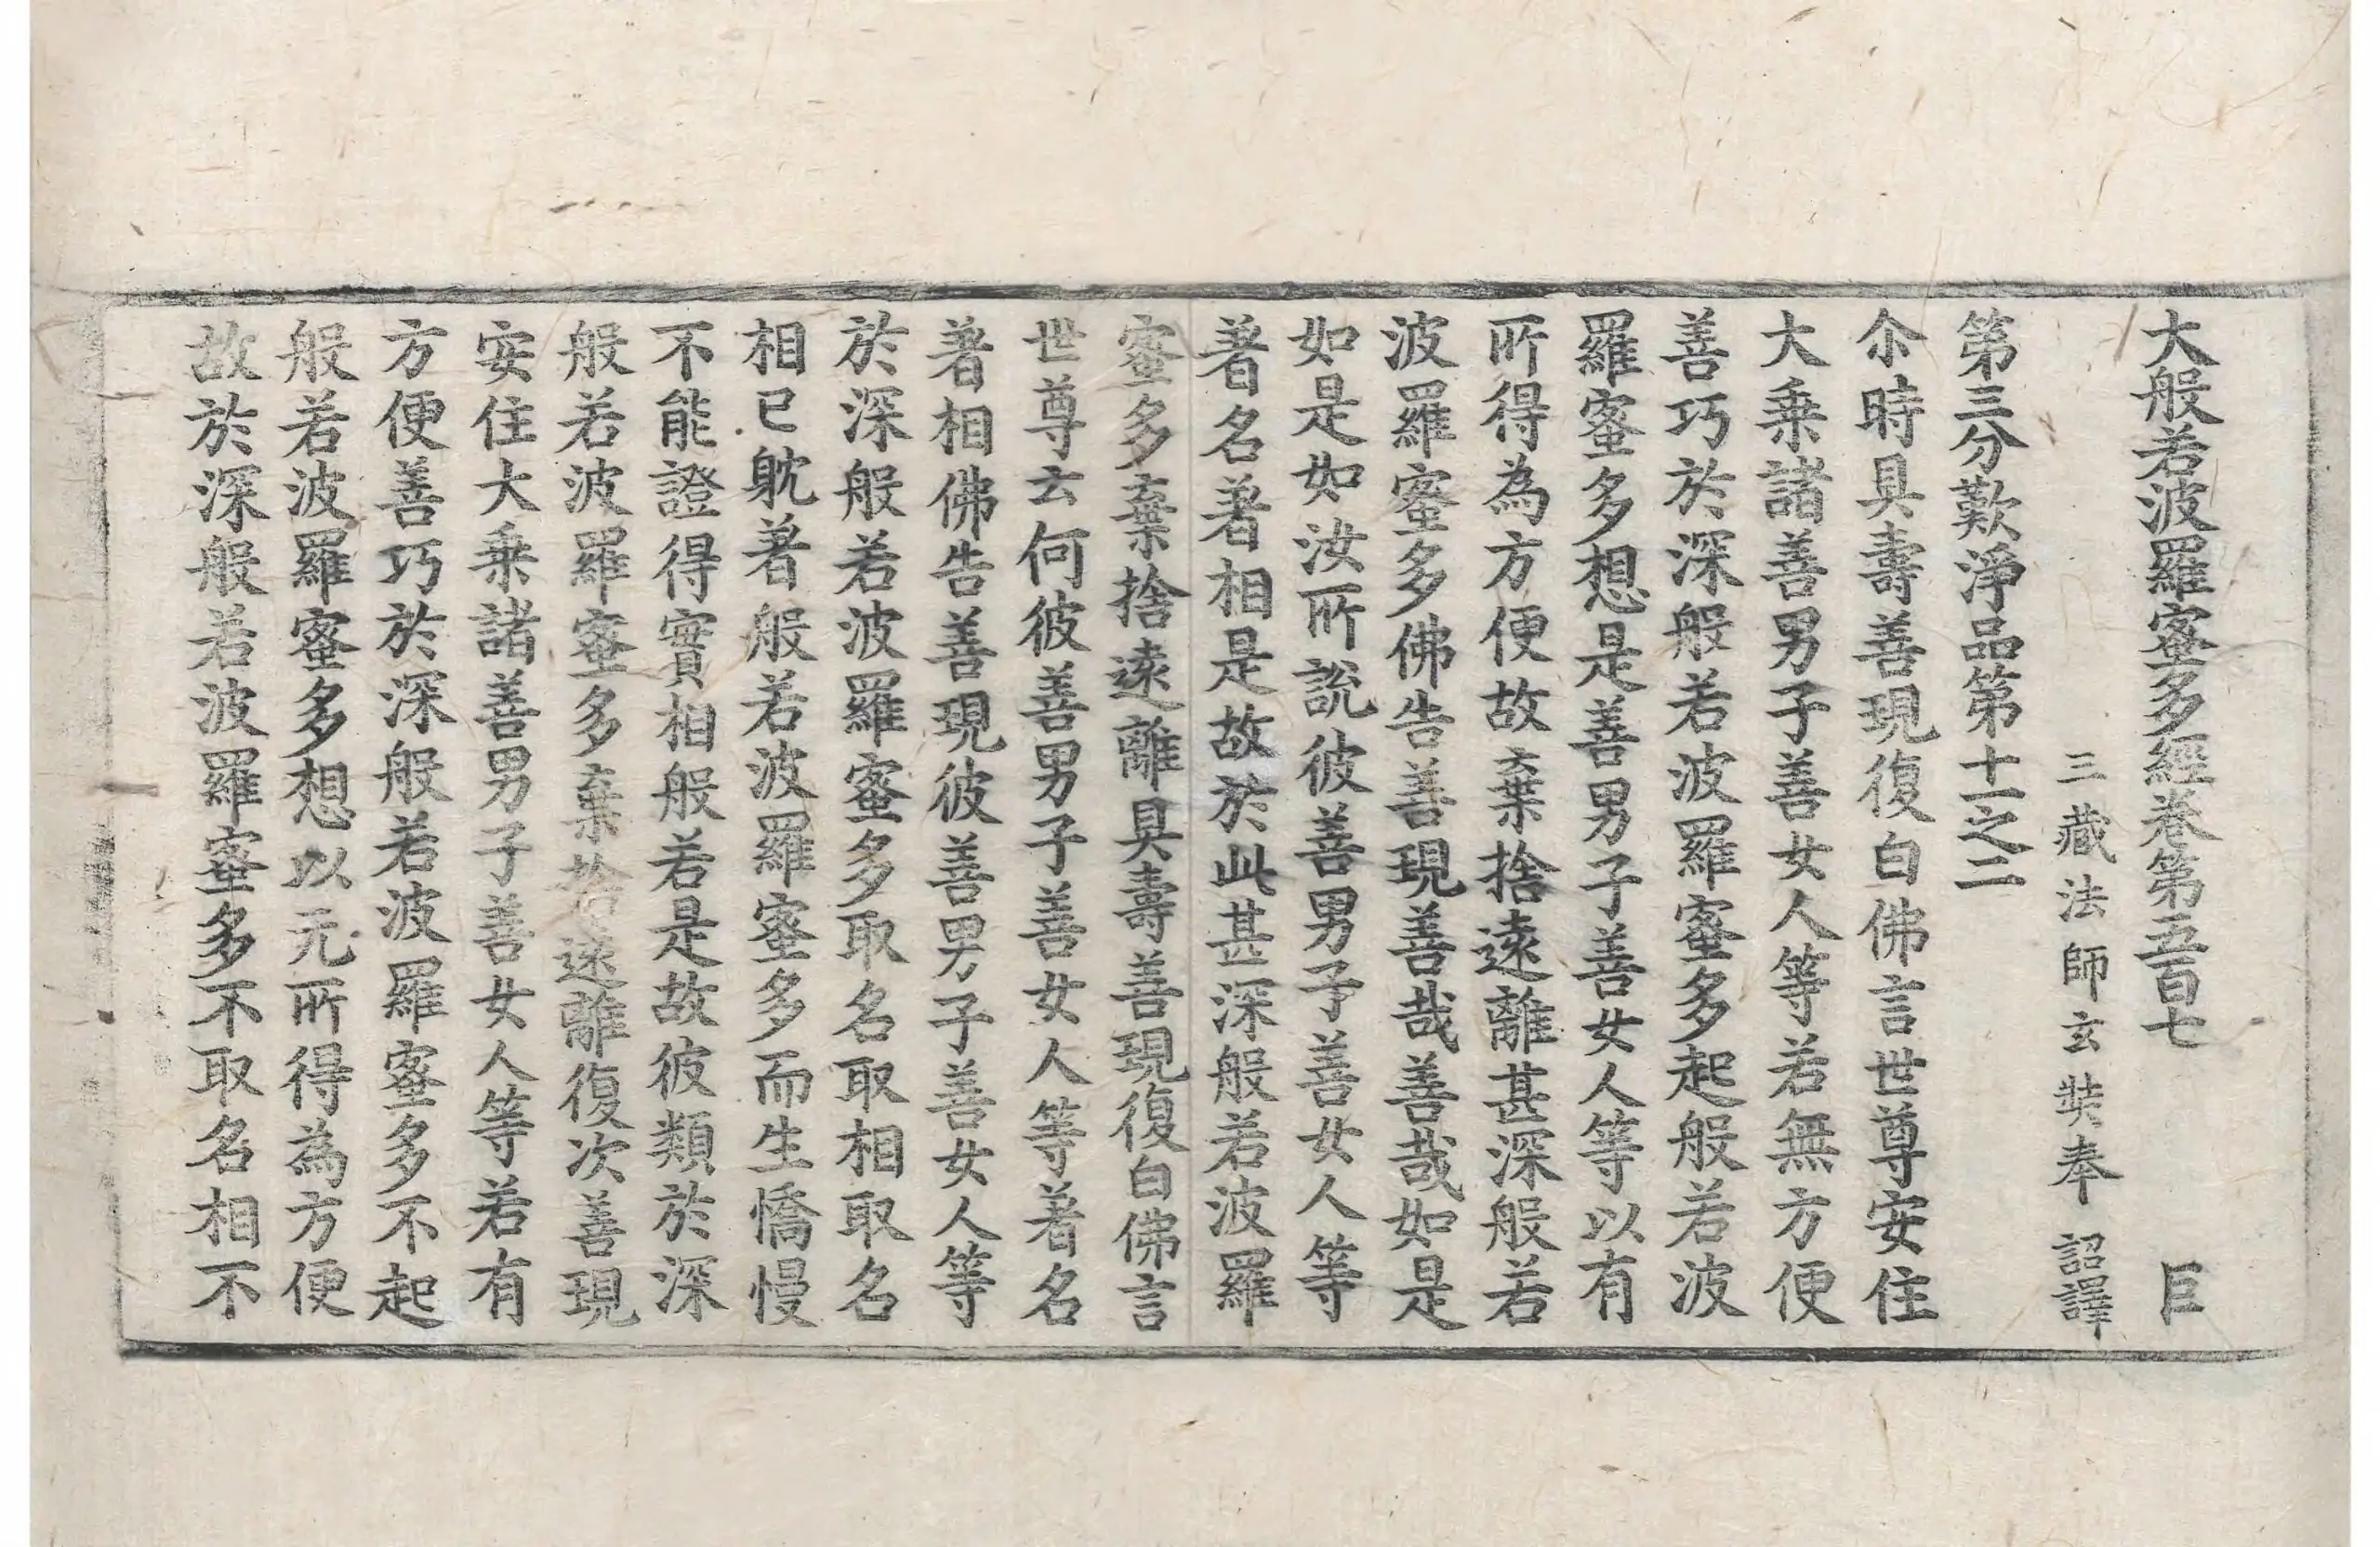 大般若波羅蜜多經卷第五百七 巨
三藏法師玄奘奉 詔譯
第三分歎淨品第十一之二
尒時具壽善現復白佛言世尊安住
大乗諸善男子善女人等若無方便
善巧於深般若波羅蜜多起般若波
羅蜜多想是善男子善女人等以有
所得為方便故棄捨遠離甚深般若
波羅蜜多佛告善現善哉善哉如是
如是如汝所說彼善男子善女人等
著名著相是故於此甚深般若波羅
蜜多棄捨遠離具壽善現復白佛言
世尊云何彼善男子善女人等著名
著相佛告善現彼善男子善女人等
於深般若波羅蜜多取名取相取名
相已躭著般若波羅蜜多而生憍慢
不能證得實相般若是故彼類於深
般若波羅蜜多棄捨遠離復次善現
安住大乗諸善男子善女人等若有
方便善巧於深般若波羅蜜多不起
般若波羅蜜多想以元所得為方便
故於深般若波羅蜜多不取名相不